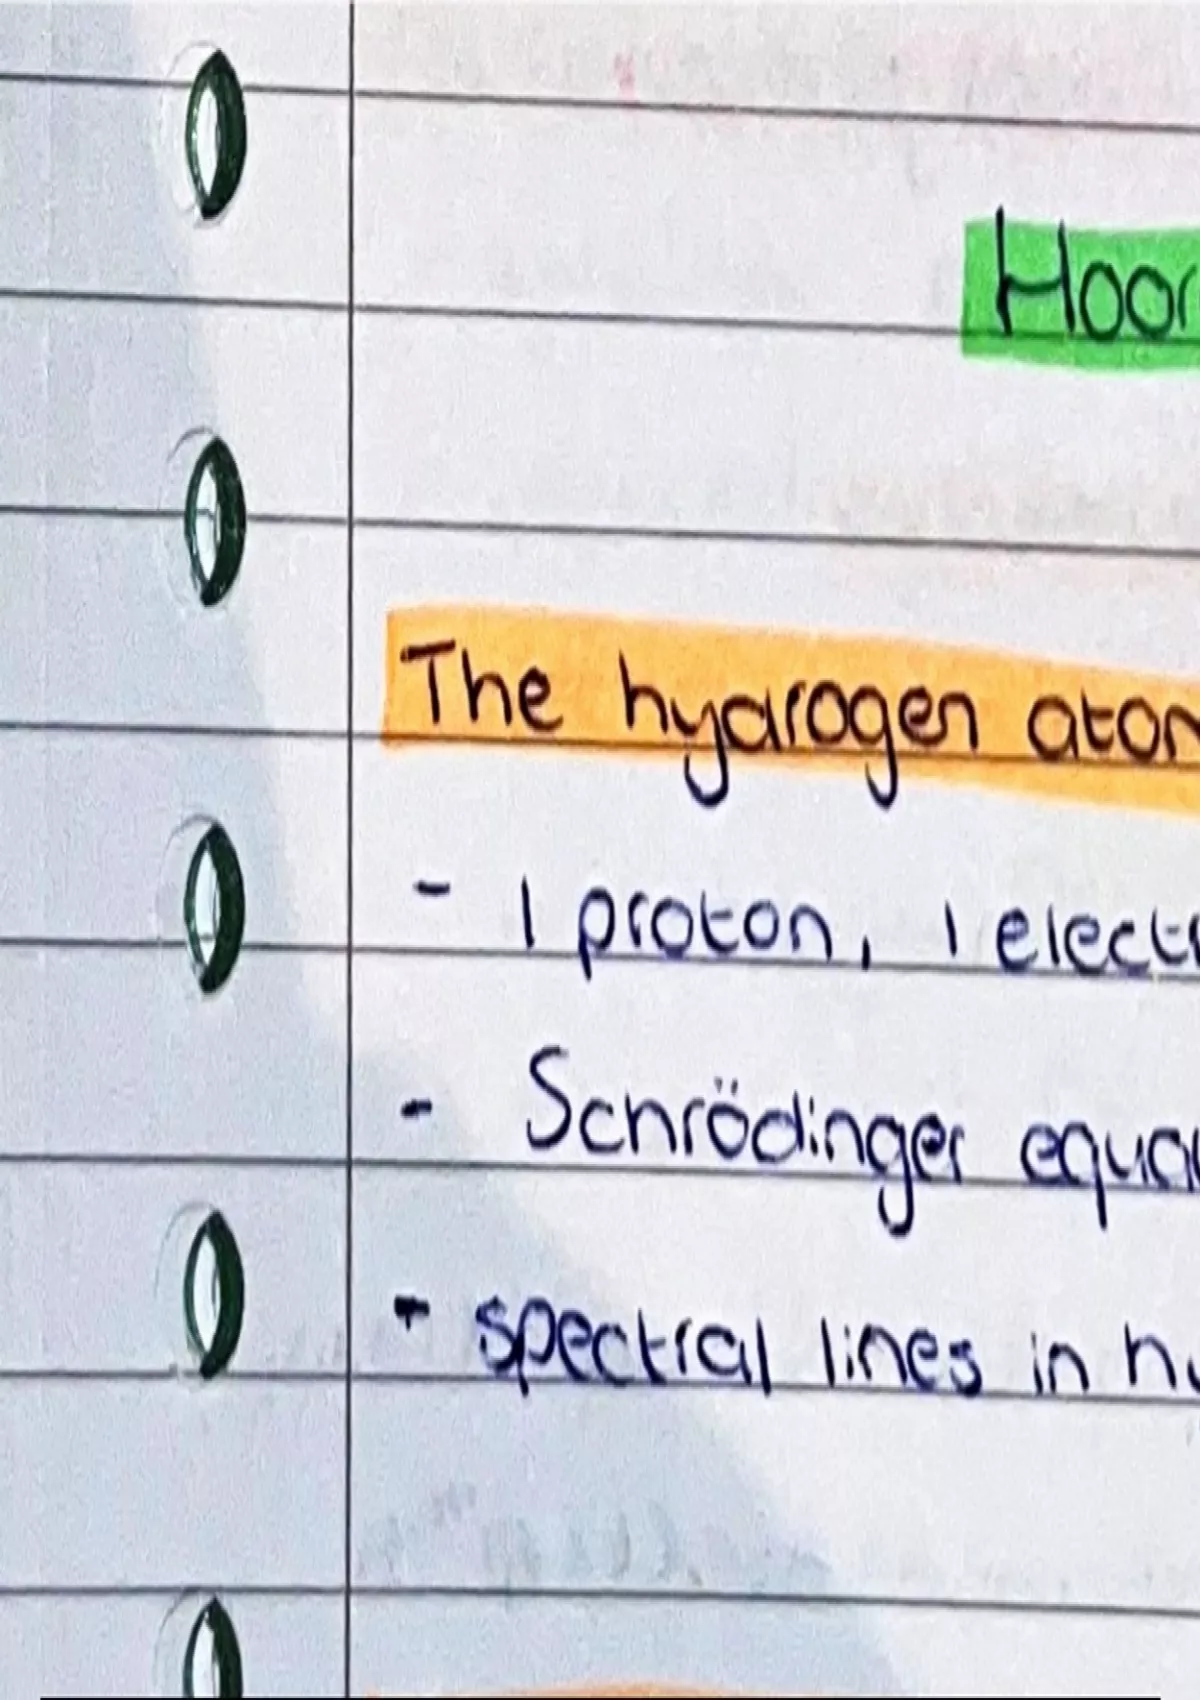 Hoor
The hydrogen atom
- 1 proton, 1 electr
- Schrödinger equa
- spectral lines in hy